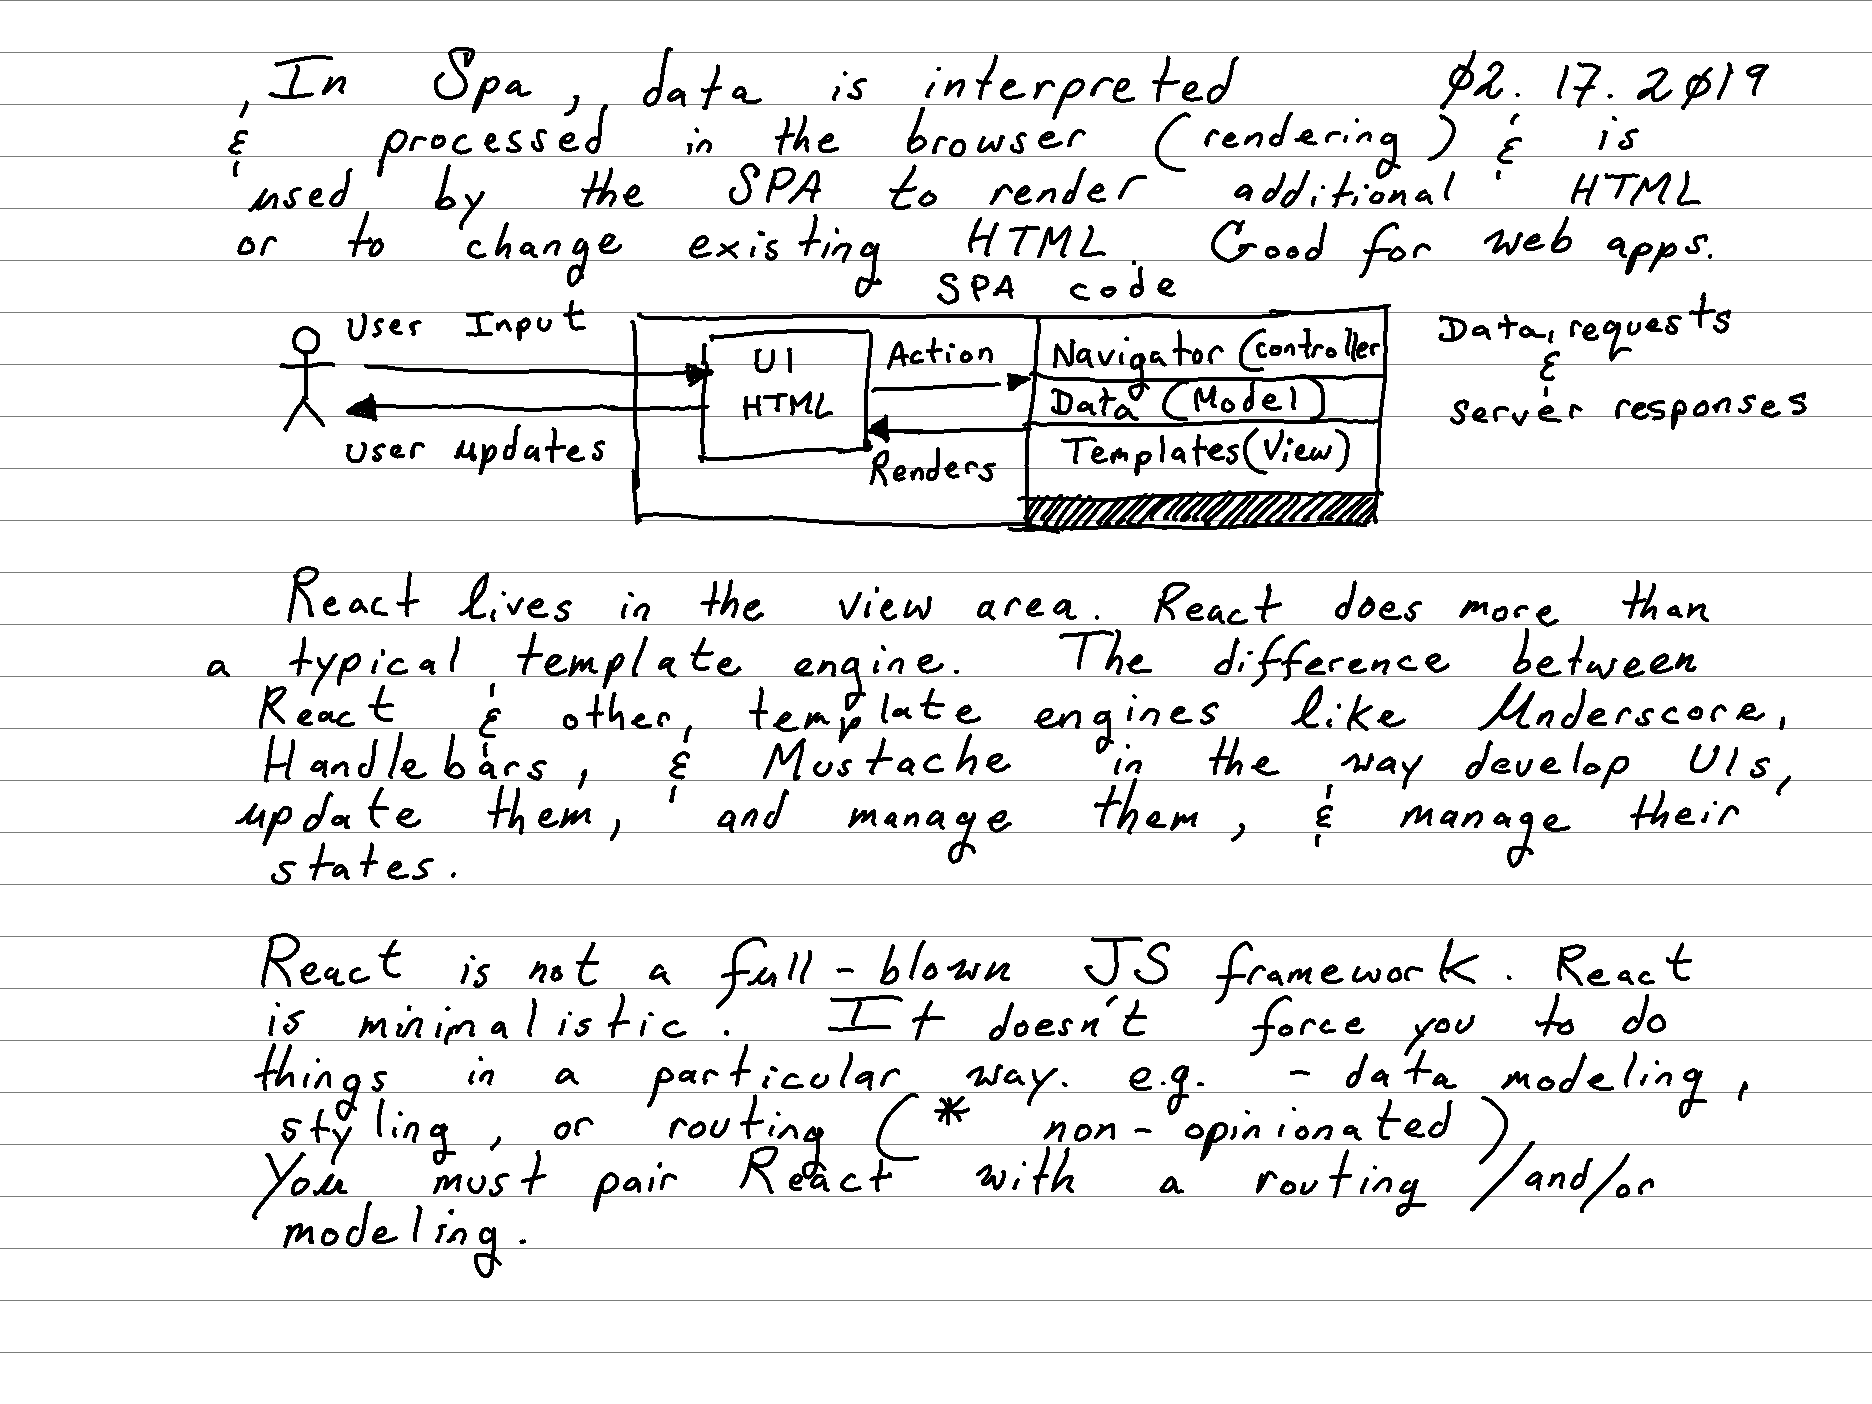 In Spa, data is interpreted 02.17.2019
& processed in the browser (rendering) & is
used by the SPA to render additional HTML
or to change existing HTML. Good for web apps.
SPA code
User Input
UI
HTML
Action
Navigator (controller
Data (Model)
Templates (View)
Renders
User updates
Data, requests
&
server responses
React lives in the view area. React does more than
a typical template engine. The difference between
React & other, template engines like Underscore,
Handlebars, & Mustache in the way develop UIs,
update them, and manage them, & manage their
states.
React is not a full-blown JS framework. React
is minimalistic. It doesn't force you to do
things in a particular way. e.g. - data modeling,
styling, or routing (* non-opinionated)
You must pair React with a routing /and/or
modeling.